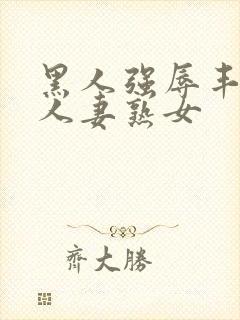 黑人强辱丰
人妻熟女
齊大勝